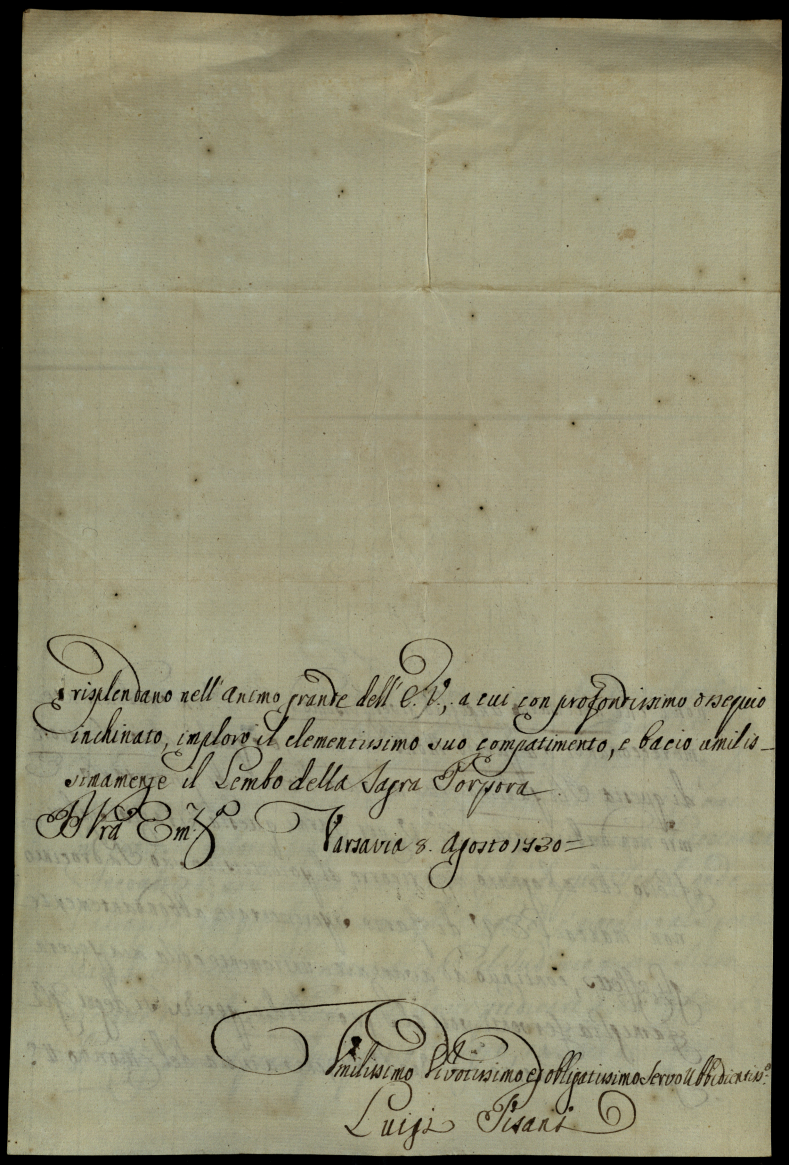 risplendano nell'animo grande dell'E.V., a cui con profondissimo ossequio
inchinato, imploro il clementissimo suo compatimento, e bacio umilis_
simamente il Lembo della Sagra Porpora
Vra Em.za Varsavia 8. Agosto 1730=
Umilissimo Divotissimo ed obligatissimo Servo Ubbidientiss.o
Luigi Pisani